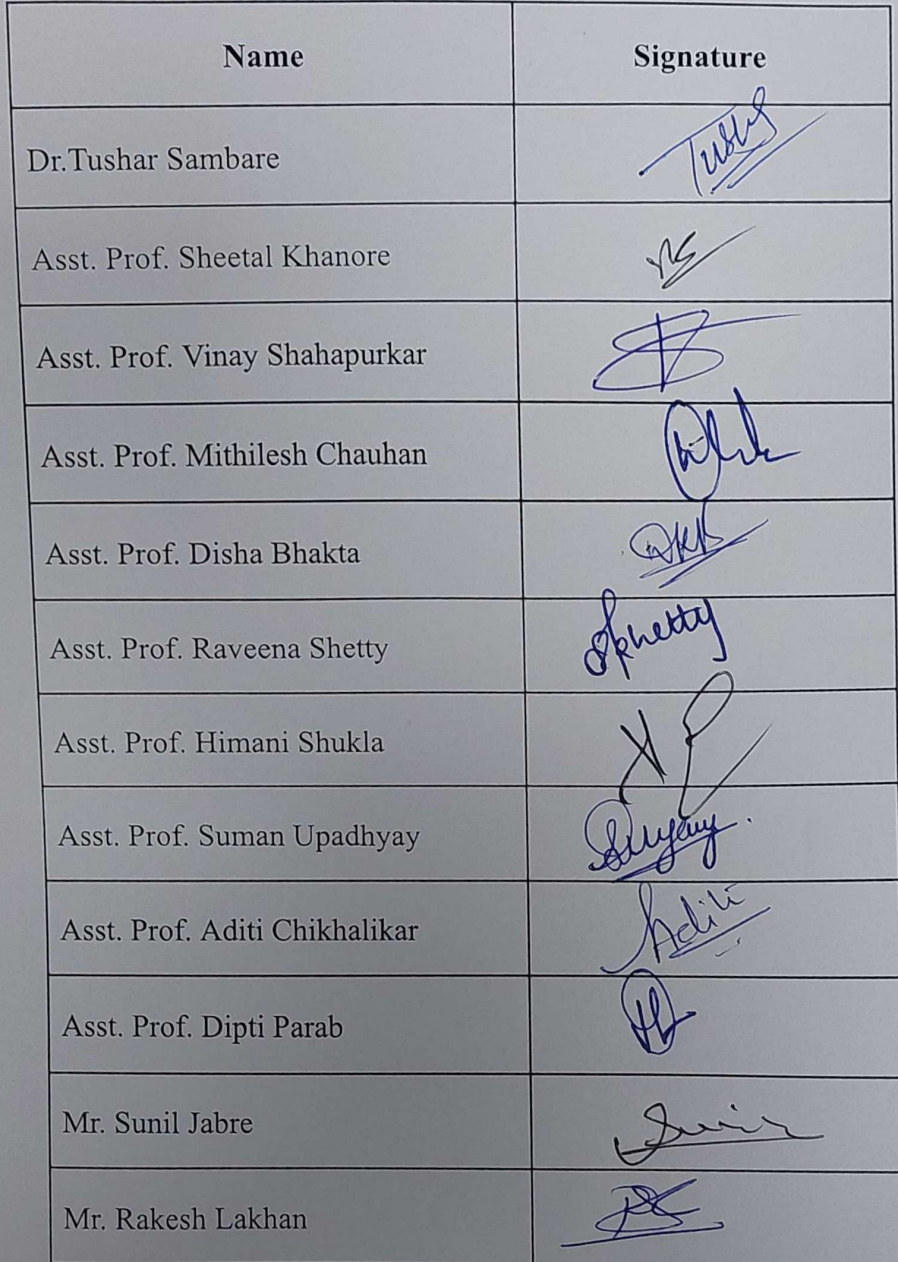 Name Signature
Dr.Tushar Sambare Tush
Asst. Prof. Sheetal Khanore
Asst. Prof. Vinay Shahapurkar
Asst. Prof. Mithilesh Chauhan
Asst. Prof. Disha Bhakta
Asst. Prof. Raveena Shetty
Asst. Prof. Himani Shukla
Asst. Prof. Suman Upadhyay
Asst. Prof. Aditi Chikhalikar Aditi
Asst. Prof. Dipti Parab
Mr. Sunil Jabre
Mr. Rakesh Lakhan